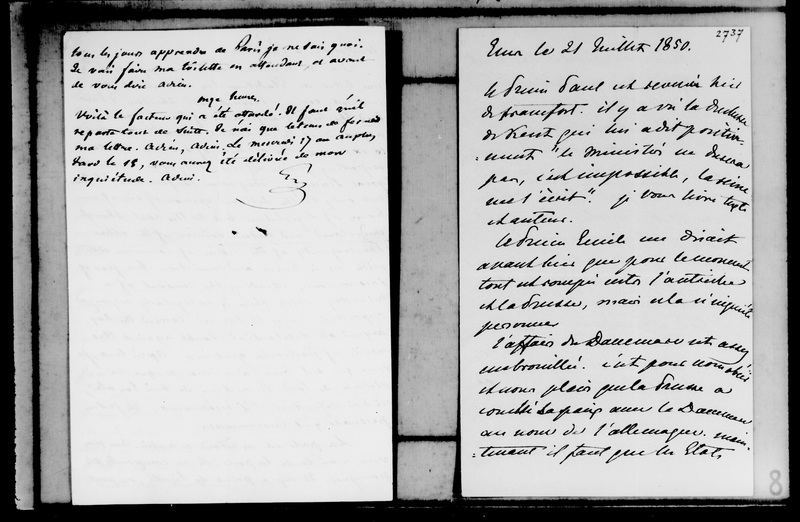 tous les jours apprendre de Paris je ne sais quoi.
Je vais faire ma toilette en attendant, et avant
de vous dire adieu.
onze heures.
Voilà le facteur qui a été attardé. Il faut qu'il
reparte tout de suite. Je n'ai que le tems de fermer
ma lettre. Adieu, adieu. Le mercredi 17 au plus
tard le 18, vous aurez été délivrée de mon
inquiétude. Adieu.
2737
Ems le 21 Juillet 1850.
le Prince Paul est revenu hier
de francfort. il y a vu la duchesse
de Kent qui lui a dit positive-
-ment "le Ministère ne durera
pas, c'est impossible, la reine
me l'écrit". je vous livre texte
et auteur.
le Prince Emile me disait
avant hier que pour le moment
tout est rompu entre l'autriche
et la Prusse, mais cela n'inquiète
personne
l'affaire du Danemarc est assez
embrouillée. c'est pour
et nous plais que la Prusse a
la paix avec le Danemarc
au nom de l'allemagne. main-
-tenant il faut que les Etats
8